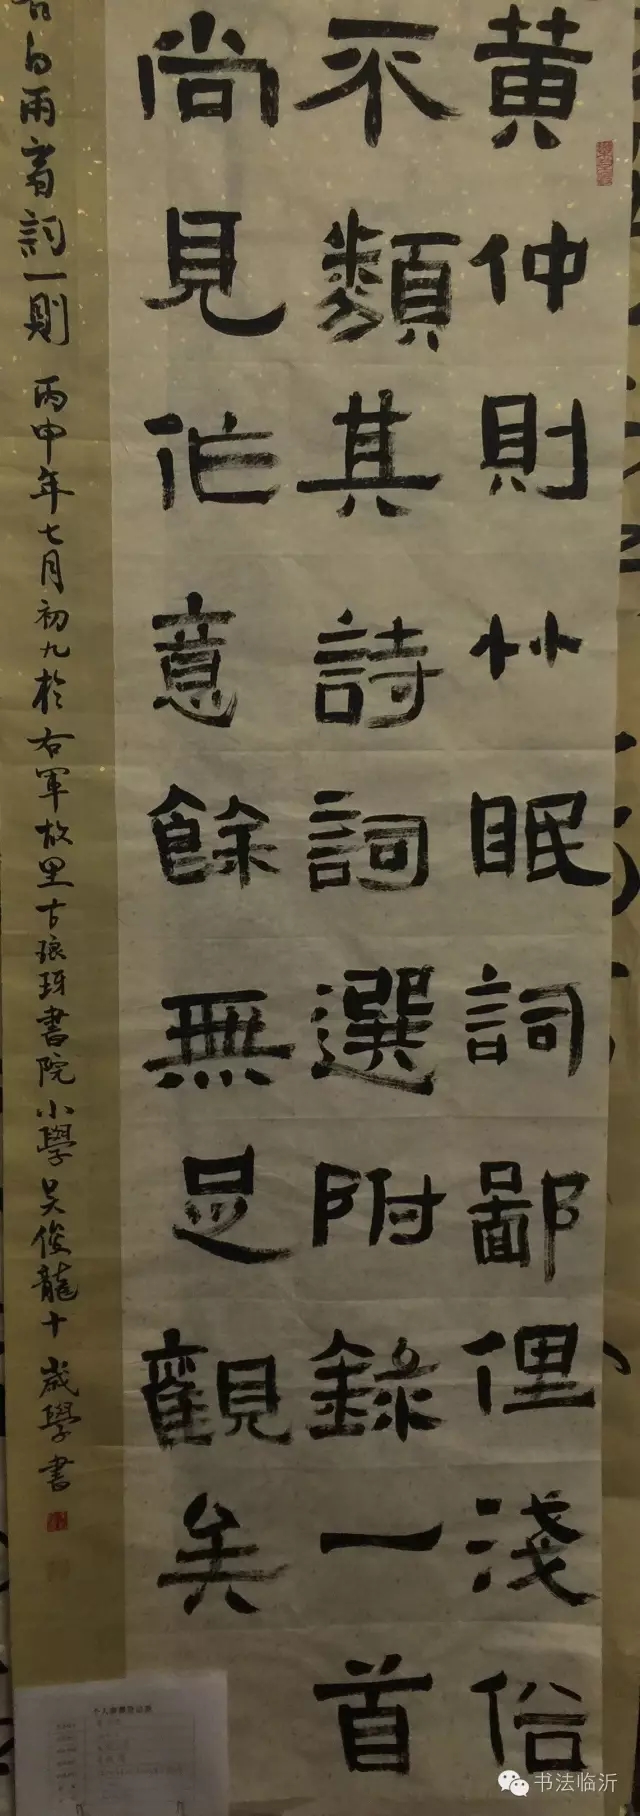 黄仲則艸眠詞鄙俚淺俗
不類其詩詞選附錄一首
尚見作意餘無足觀矣
白雨齋詞一則 丙申年七月初九於右軍故里古琅琊書院小學吴俊龍十歲學書
书法临沂